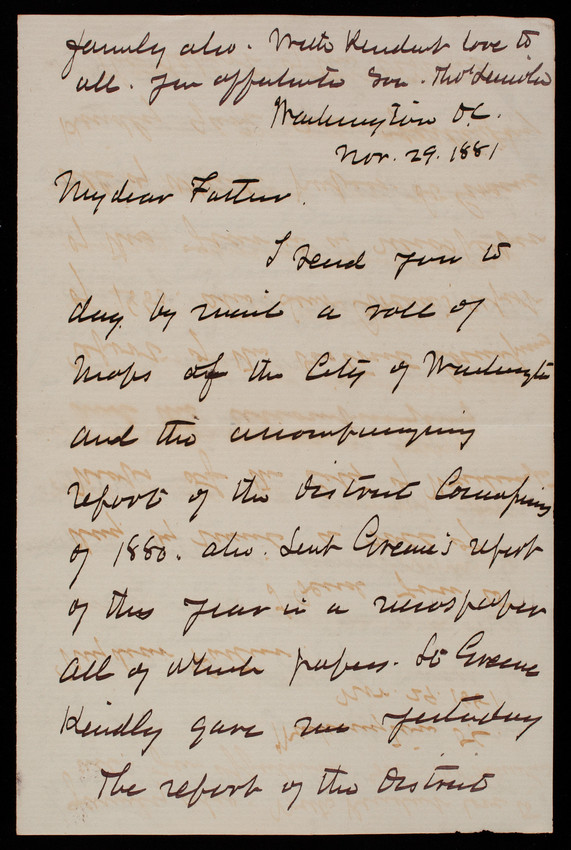 family also. With kindest love to
all. Your affectionate Son. Thos Lincoln
Washington DC.
Nov. 29. 1881
My dear Father.
I send you to
day by mail a roll of
Maps of the City of Washington
and the accompanying
report of the District Comms
of 1880. also Lieut Greene's report
of this year in a newspaper
all of which papers. Lt Greene
Kindly gave me yesterday
The report of the District